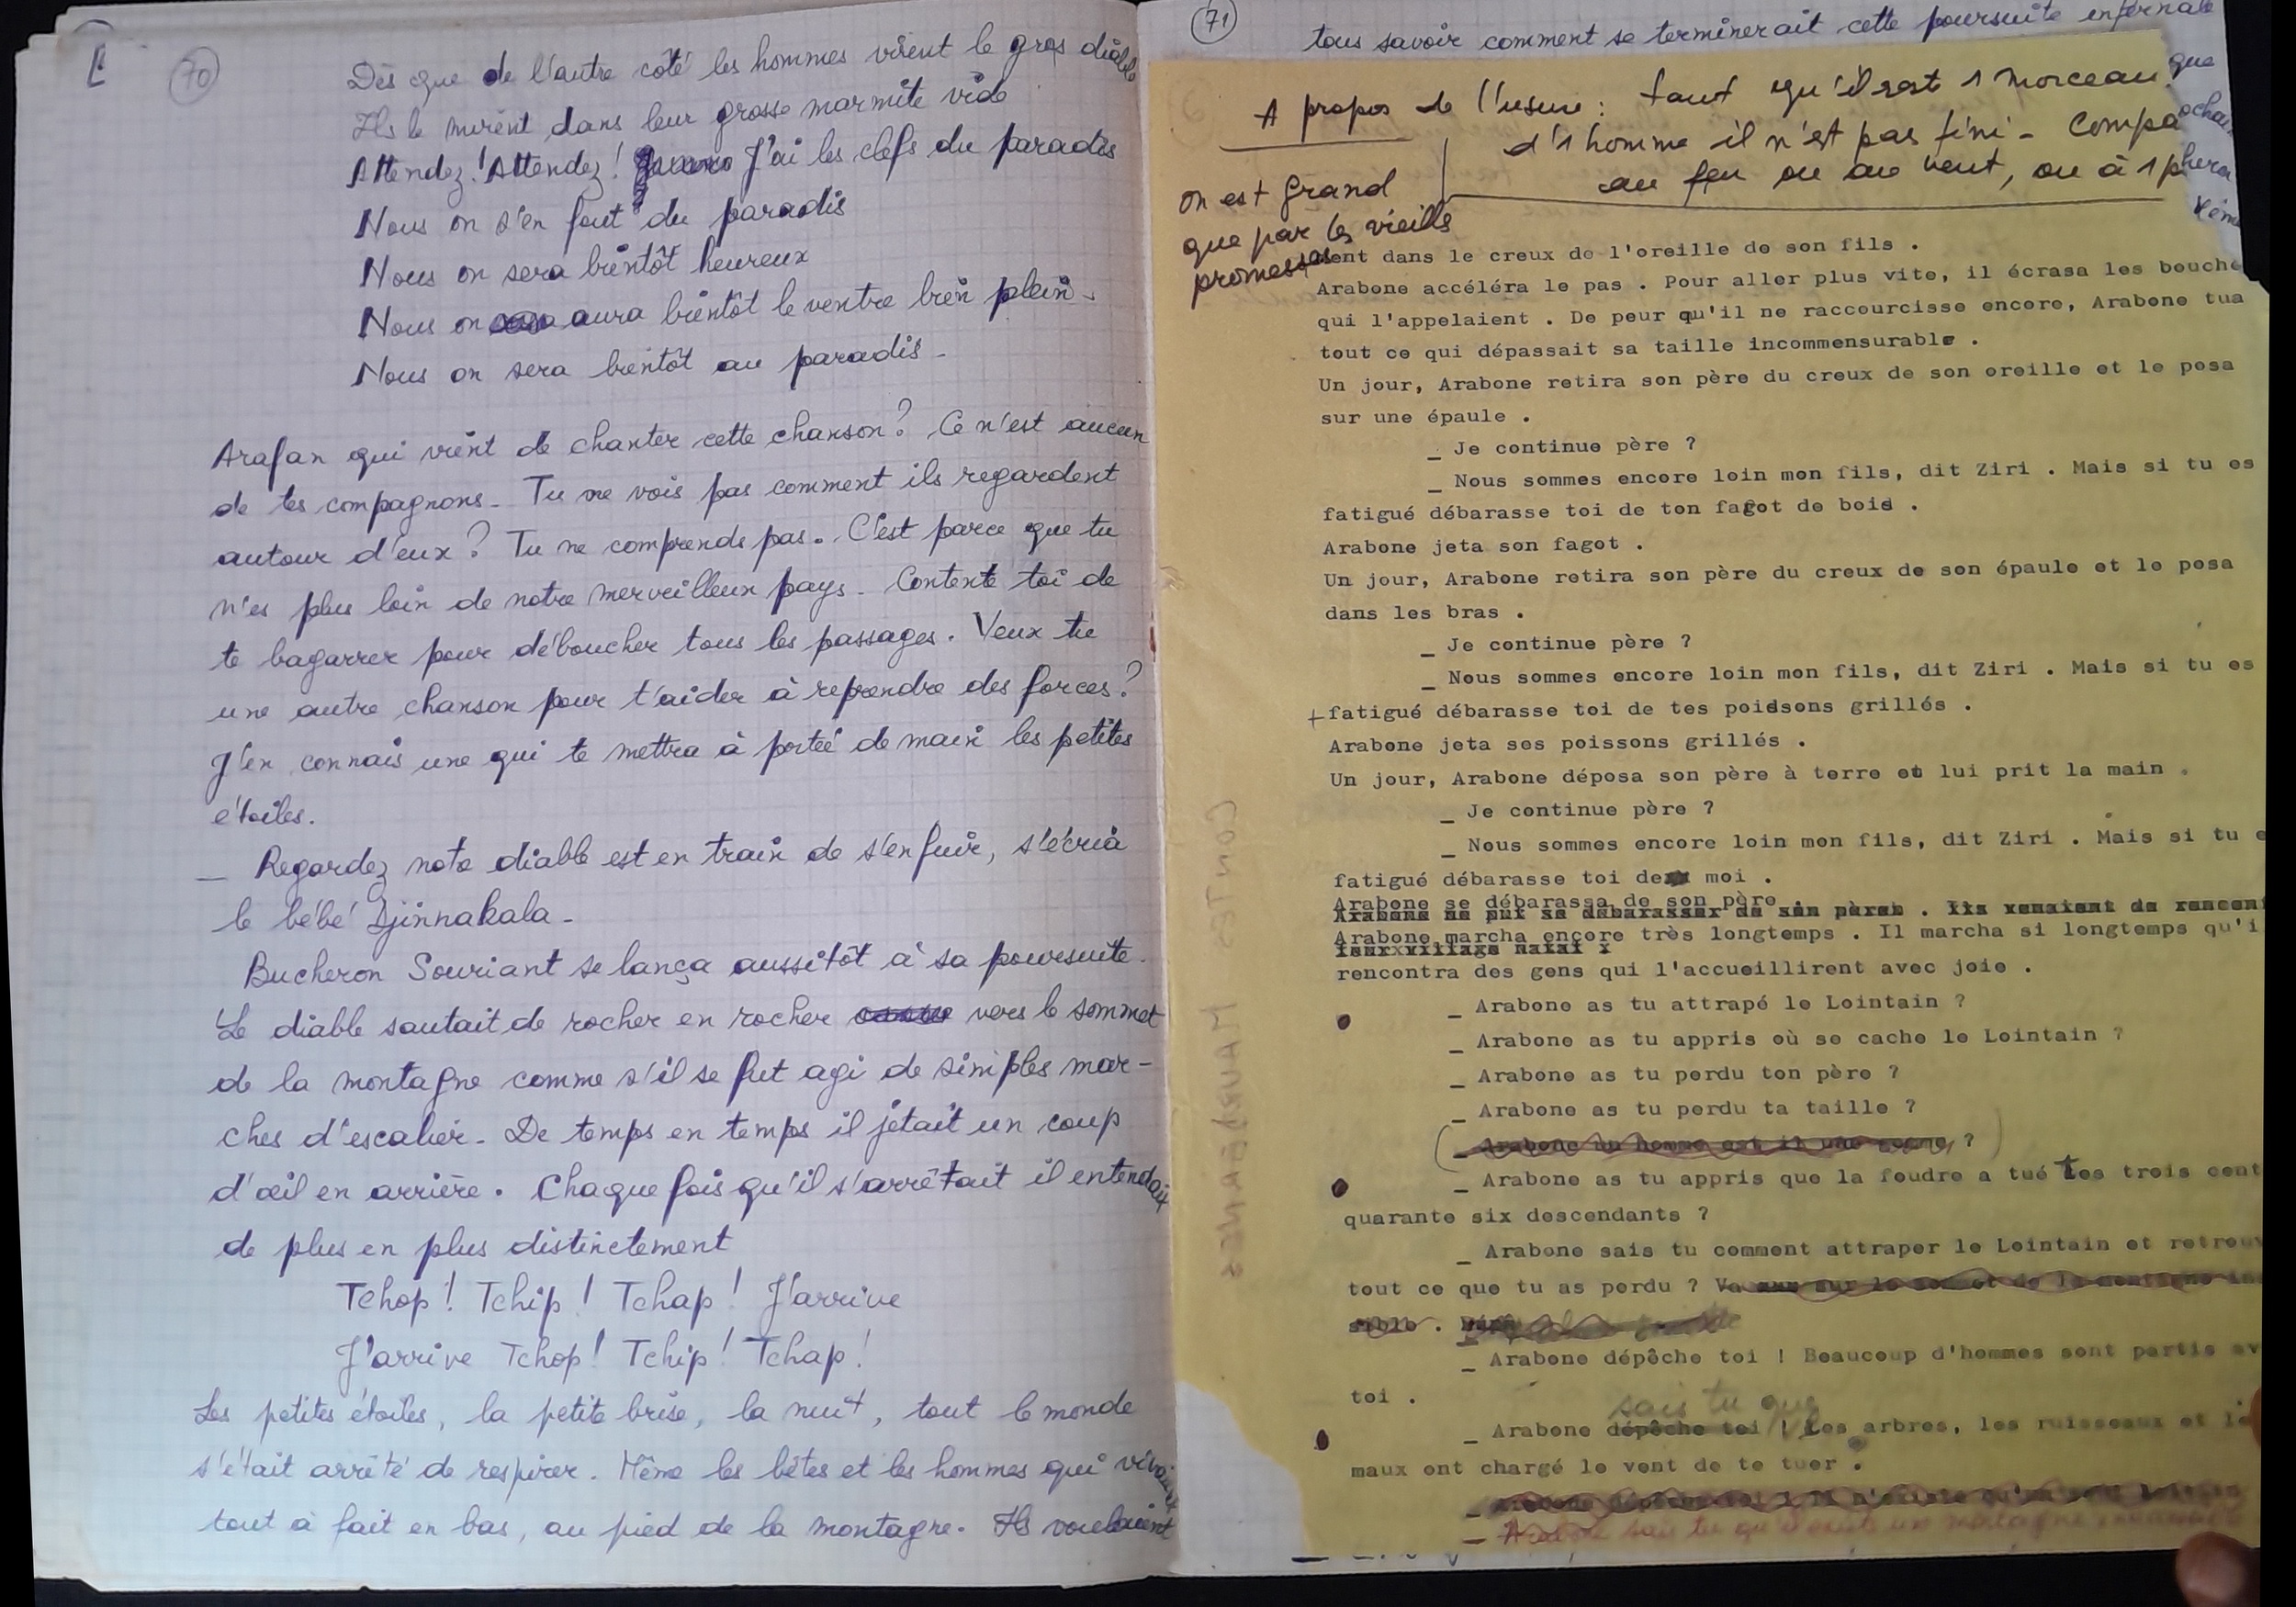 70
Dès que de l'autre coté les hommes virent le gros diable
Ils le mirent dans leur grosse marmite vide
Attendez! Attendez! J'ai les clefs du paradis
Nous on s'en fout du paradis
Nous on sera bientôt heureux
Nous on aura bientôt le ventre bien plein.
Nous on sera bientôt au paradis.
Arafan qui vient de chanter cette chanson? Ce n'est aucun
de tes compagnons. Tu ne vois pas comment ils regardent
autour d'eux? Tu ne comprends pas. C'est parce que tu
n'es plus loin de notre merveilleux pays. Contente toi de
te bagarrer pour déboucher tous les passages. Veux tu
une autre chanson pour t'aider à reprendre des forces?
J'en connais une qui te mettra à porteé de main les petites
étoiles.
_ Regardez note diable est en train de s'enfuir, s'écria
le bébé Djinnakala.
Bucheron Souriant se lança aussitôt à sa poursuite.
Le diable sautait de rocher en rocher vers le sommet
de la montagne comme s'il se fut agi de simples mar-
ches d'escalier. De temps en temps il jetait un coup
d'œil en arrière. Chaque fois qu'il s'arrêtait il entendait
de plus en plus distinctement
Tchop! Tchip! Tchap! J'arrive
J'arrive Tchop! Tchip! Tchap!
Les petites étoiles, la petite brise, la nuit, tout le monde
s'était arrêté de respirer. Même les bêtes et les hommes qui vivaient
tout à fait en bas, au pied de la montagne. Ils voulaient
71
tous savoir comment se terminerait cette poursuite infernale
que
A propos de l'usure: tant qu'il rest 1 morceau
d'1 homme il n'est pas fini - Compa
au feu ou au vent, ou à 1 ph
on est grand
que par les vieilles
promesses
ment dans le creux de l'oreille de son fils .
Arabone accéléra le pas . Pour aller plus vite, il écrasa les bouche
qui l'appelaient . De peur qu'il ne raccourcisse encore, Arabone tua
tout ce qui dépassait sa taille incommensurable .
Un jour, Arabone retira son père du creux de son oreille et le posa
sur une épaule .
_ Je continue père ?
_ Nous sommes encore loin mon fils, dit Ziri . Mais si tu es
fatigué débarasse toi de ton fagot de bois .
Arabone jeta son fagot .
Un jour, Arabone retira son père du creux de son épaule et le posa
dans les bras .
_ Je continue père ?
_ Nous sommes encore loin mon fils, dit Ziri . Mais si tu es
+ fatigué débarasse toi de tes poissons grillés .
Arabone jeta ses poissons grillés .
Un jour, Arabone déposa son père à terre et lui prit la main .
_ Je continue père ?
_ Nous sommes encore loin mon fils, dit Ziri . Mais si tu e
fatigué débarasse toi de moi .
Arabone se débarassa de son père
Arabone marcha encore très longtemps . Il marcha si longtemps qu'i
rencontra des gens qui l'accueillirent avec joie .
_ Arabone as tu attrapé le Lointain ?
_ Arabone as tu appris où se cache le Lointain ?
_ Arabone as tu perdu ton père ?
_ Arabone as tu perdu ta taille ?
_ Arabone un homme est il une ?
_ Arabone as tu appris que la foudre a tué tes trois cent
quarante six descendants ?
_ Arabone sais tu comment attraper le Lointain et retrouv
tout ce que tu as perdu ? Va sur le sommet de la montagne
_ Arabone dépêche toi ! Beaucoup d'hommes sont partis av
toi .
sais tu que
_ Arabone dépêche toi ! les arbres, les ruisseaux et le
maux ont chargé le vent de te tuer .
CONTES MAURÉANES